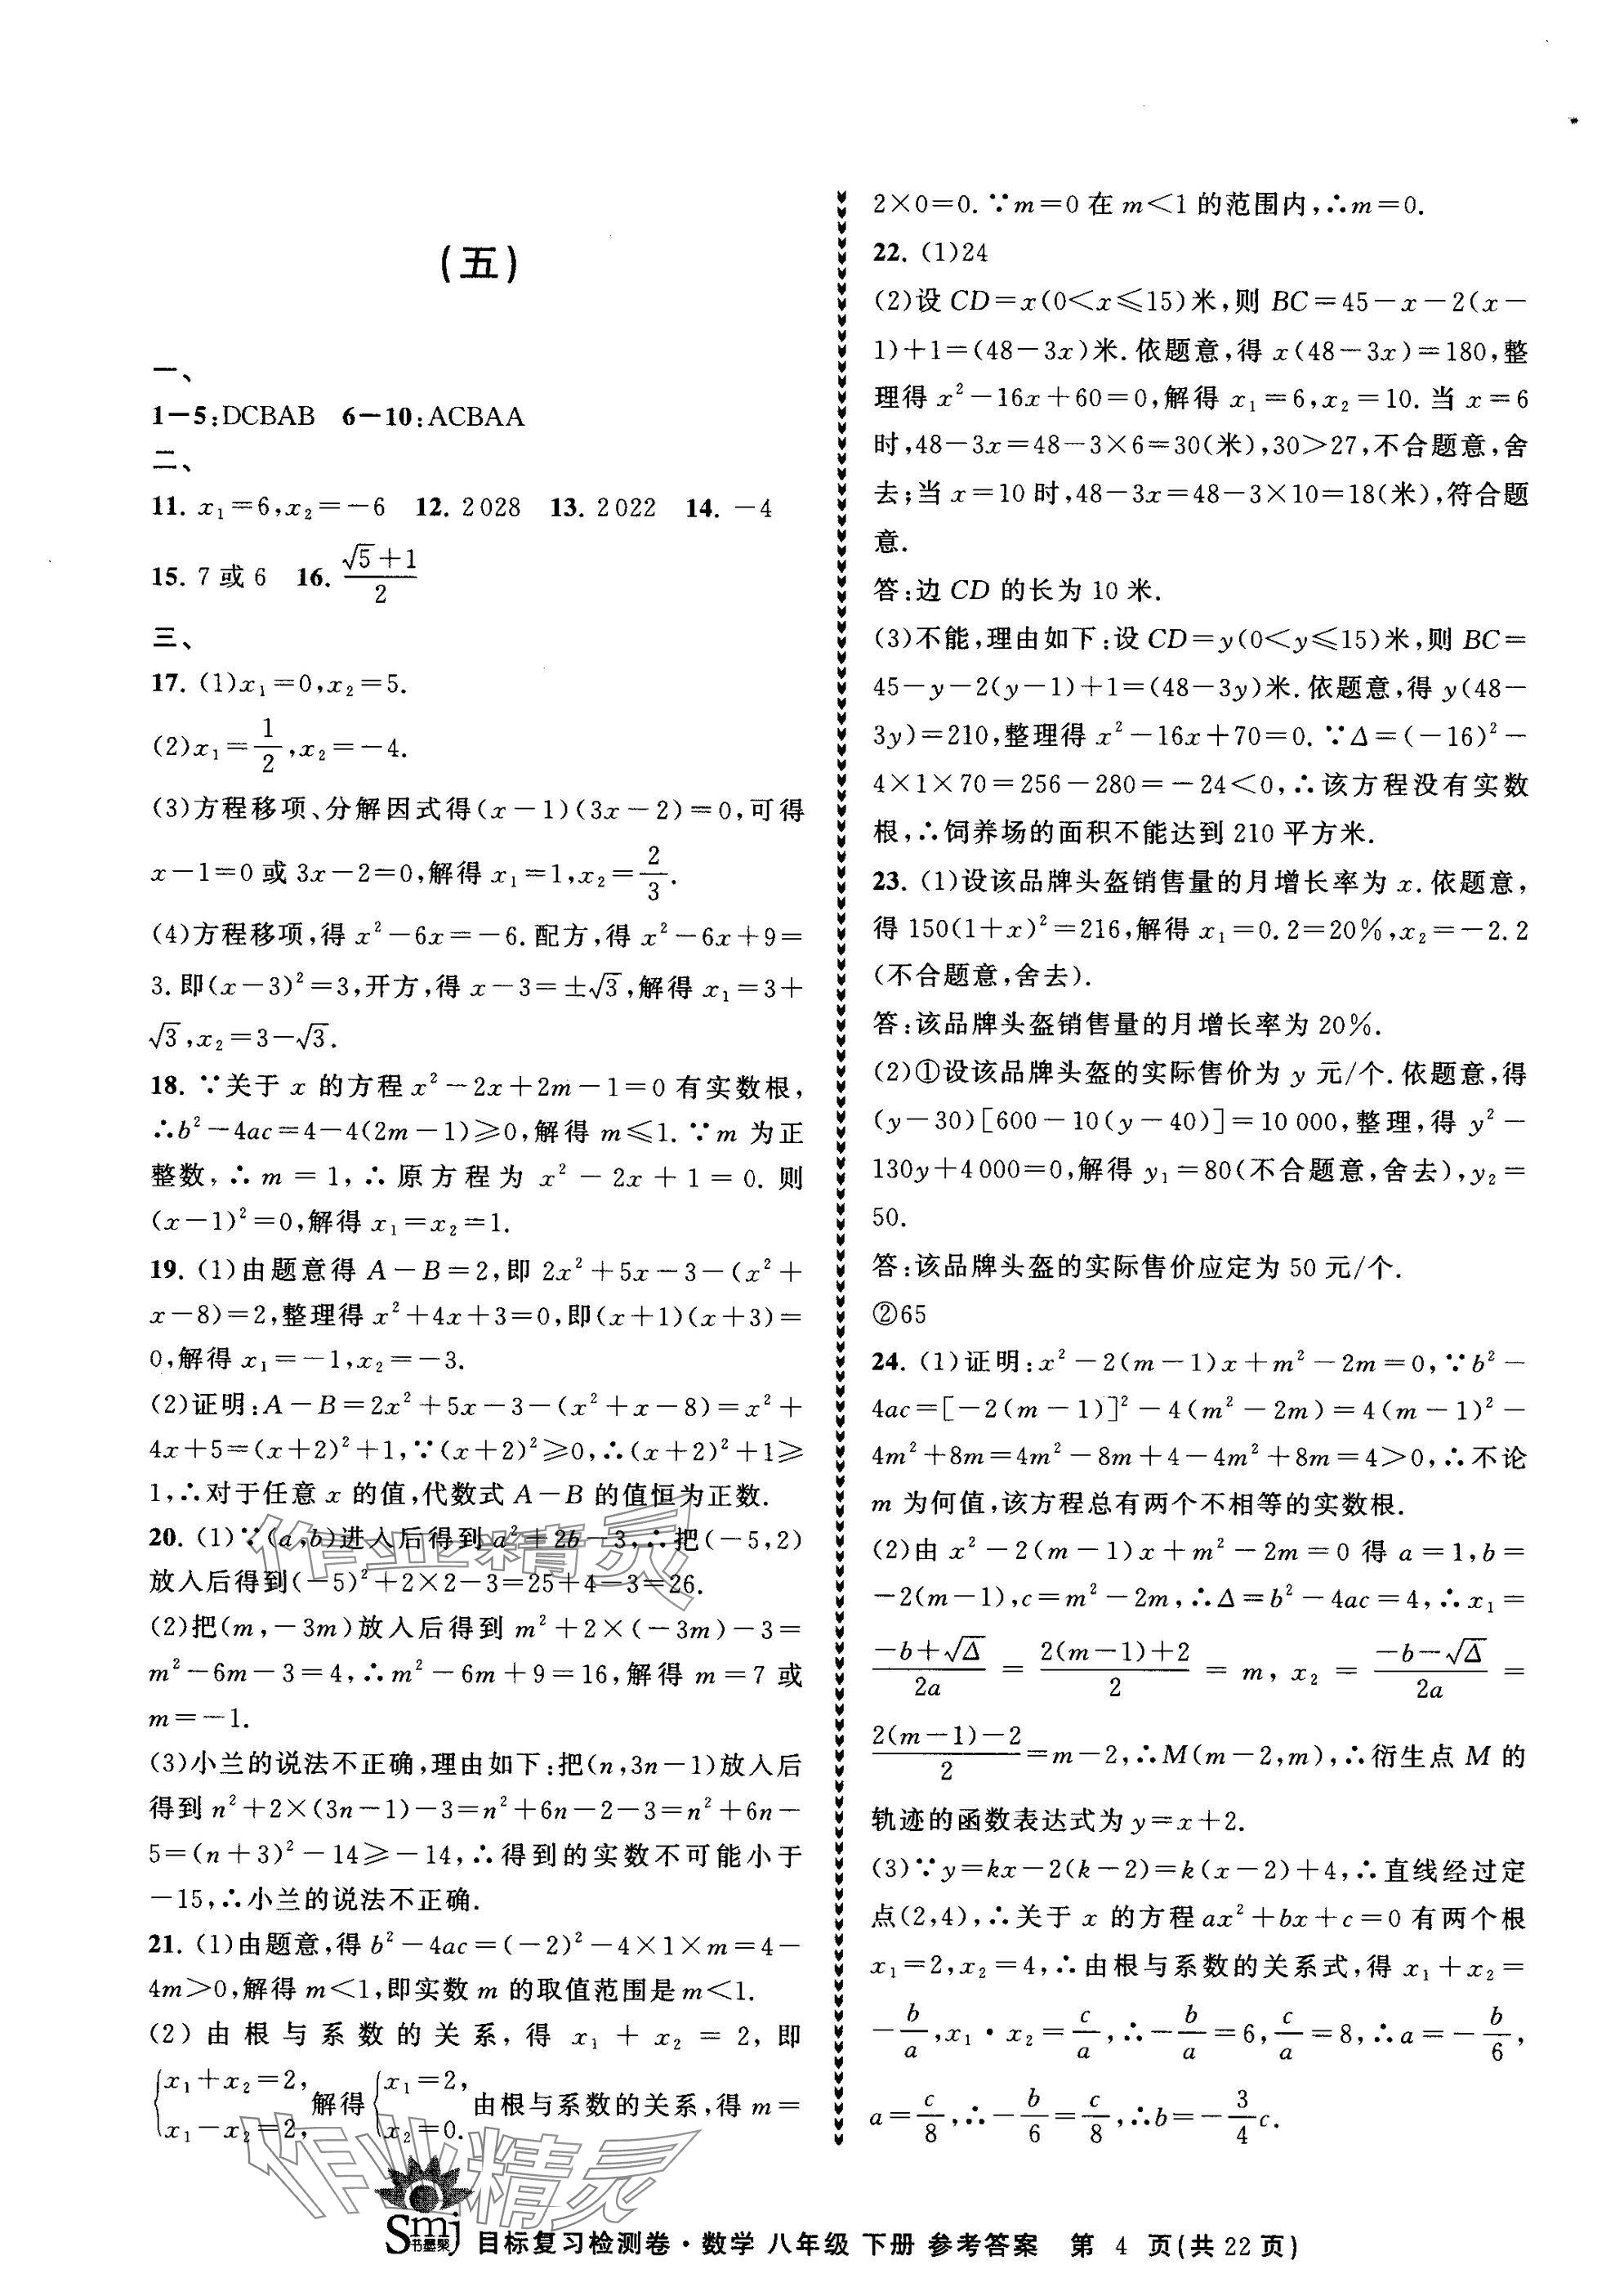 (五)
一、
1-5:DCBAB 6-10:ACBAA
二、
11. x₁=6,x₂=-6 12. 2028 13. 2022 14. -4
15. 7 或 6 16. (√5+1)/2
三、
17. (1)x₁=0,x₂=5.
(2)x₁=1/2,x₂=-4.
(3)方程移项、分解因式得(x-1)(3x-2)=0,可得
x-1=0 或 3x-2=0,解得 x₁=1,x₂=2/3.
(4)方程移项,得 x²-6x=-6. 配方,得 x²-6x+9=
3. 即(x-3)²=3,开方,得 x-3=±√3,解得 x₁=3+
√3,x₂=3-√3.
18. ∵关于 x 的方程 x²-2x+2m-1=0 有实数根,
∴b²-4ac=4-4(2m-1)≥0,解得 m≤1. ∵m 为正
整数,∴m=1,∴原方程为 x²-2x+1=0. 则
(x-1)²=0,解得 x₁=x₂=1.
19. (1)由题意得 A-B=2,即 2x²+5x-3-(x²+
x-8)=2,整理得 x²+4x+3=0,即(x+1)(x+3)=
0,解得 x₁=-1,x₂=-3.
(2)证明:A-B=2x²+5x-3-(x²+x-8)=x²+
4x+5=(x+2)²+1,∵(x+2)²≥0,∴(x+2)²+1≥
1,∴对于任意 x 的值,代数式 A-B 的值恒为正数.
20. (1)∵(a,b)进入后得到 a²+2b-3,∴把(-5,2)
放入后得到(-5)²+2×2-3=25+4-3=26.
(2)把(m,-3m)放入后得到 m²+2×(-3m)-3=
m²-6m-3=4,∴m²-6m+9=16,解得 m=7 或
m=-1.
(3)小兰的说法不正确,理由如下:把(n,3n-1)放入后
得到 n²+2×(3n-1)-3=n²+6n-2-3=n²+6n-
5=(n+3)²-14≥-14,∴得到的实数不可能小于
-15,∴小兰的说法不正确.
21. (1)由题意,得 b²-4ac=(-2)²-4×1×m=4-
4m>0,解得 m<1,即实数 m 的取值范围是 m<1.
(2)由根与系数的关系,得 x₁+x₂=2,即
{x₁+x₂=2, x₁-x₂=2, 解得 {x₁=2, x₂=0. 由根与系数的关系,得 m=
2×0=0. ∵m=0 在 m<1 的范围内,∴m=0.
22. (1)24
(2)设 CD=x(0<x≤15)米,则 BC=45-x-2(x-
1)+1=(48-3x)米. 依题意,得 x(48-3x)=180,整
理得 x²-16x+60=0,解得 x₁=6,x₂=10. 当 x=6
时,48-3x=48-3×6=30(米),30>27,不合题意,舍
去;当 x=10 时,48-3x=48-3×10=18(米),符合题
意.
答:边 CD 的长为 10 米.
(3)不能,理由如下:设 CD=y(0<y≤15)米,则 BC=
45-y-2(y-1)+1=(48-3y)米. 依题意,得 y(48-
3y)=210,整理得 x²-16x+70=0. ∵Δ=(-16)²-
4×1×70=256-280=-24<0,∴该方程没有实数
根,∴饲养场的面积不能达到 210 平方米.
23. (1)设该品牌头盔销售量的月增长率为 x. 依题意,
得 150(1+x)²=216,解得 x₁=0.2=20%,x₂=-2.2
(不合题意,舍去).
答:该品牌头盔销售量的月增长率为 20%.
(2)①设该品牌头盔的实际售价为 y 元/个. 依题意,得
(y-30)[600-10(y-40)]=10 000,整理,得 y²-
130y+4 000=0,解得 y₁=80(不合题意,舍去),y₂=
50.
答:该品牌头盔的实际售价应定为 50 元/个.
②65
24. (1)证明:x²-2(m-1)x+m²-2m=0,∵b²-
4ac=[-2(m-1)]²-4(m²-2m)=4(m-1)²-
4m²+8m=4m²-8m+4-4m²+8m=4>0,∴不论
m 为何值,该方程总有两个不相等的实数根.
(2)由 x²-2(m-1)x+m²-2m=0 得 a=1,b=
-2(m-1),c=m²-2m,∴Δ=b²-4ac=4,∴x₁=
(-b+√Δ)/2a=(2(m-1)+2)/2=m,x₂=(-b-√Δ)/2a=
(2(m-1)-2)/2=m-2,∴M(m-2,m),∴衍生点 M 的
轨迹的函数表达式为 y=x+2.
(3)∵y=kx-2(k-2)=k(x-2)+4,∴直线经过定
点(2,4),∴关于 x 的方程 ax²+bx+c=0 有两个根
x₁=2,x₂=4,∴由根与系数的关系式,得 x₁+x₂=
-b/a,x₁·x₂=c/a,∴-b/a=6,c/a=8,∴a=-b/6,
a=c/8,∴-b/6=c/8,∴b=-3/4c.
作业精灵
作业精灵
Smj 书墨聚
目标复习检测卷·数学 八年级 下册 参考答案 第 4 页(共 22 页)